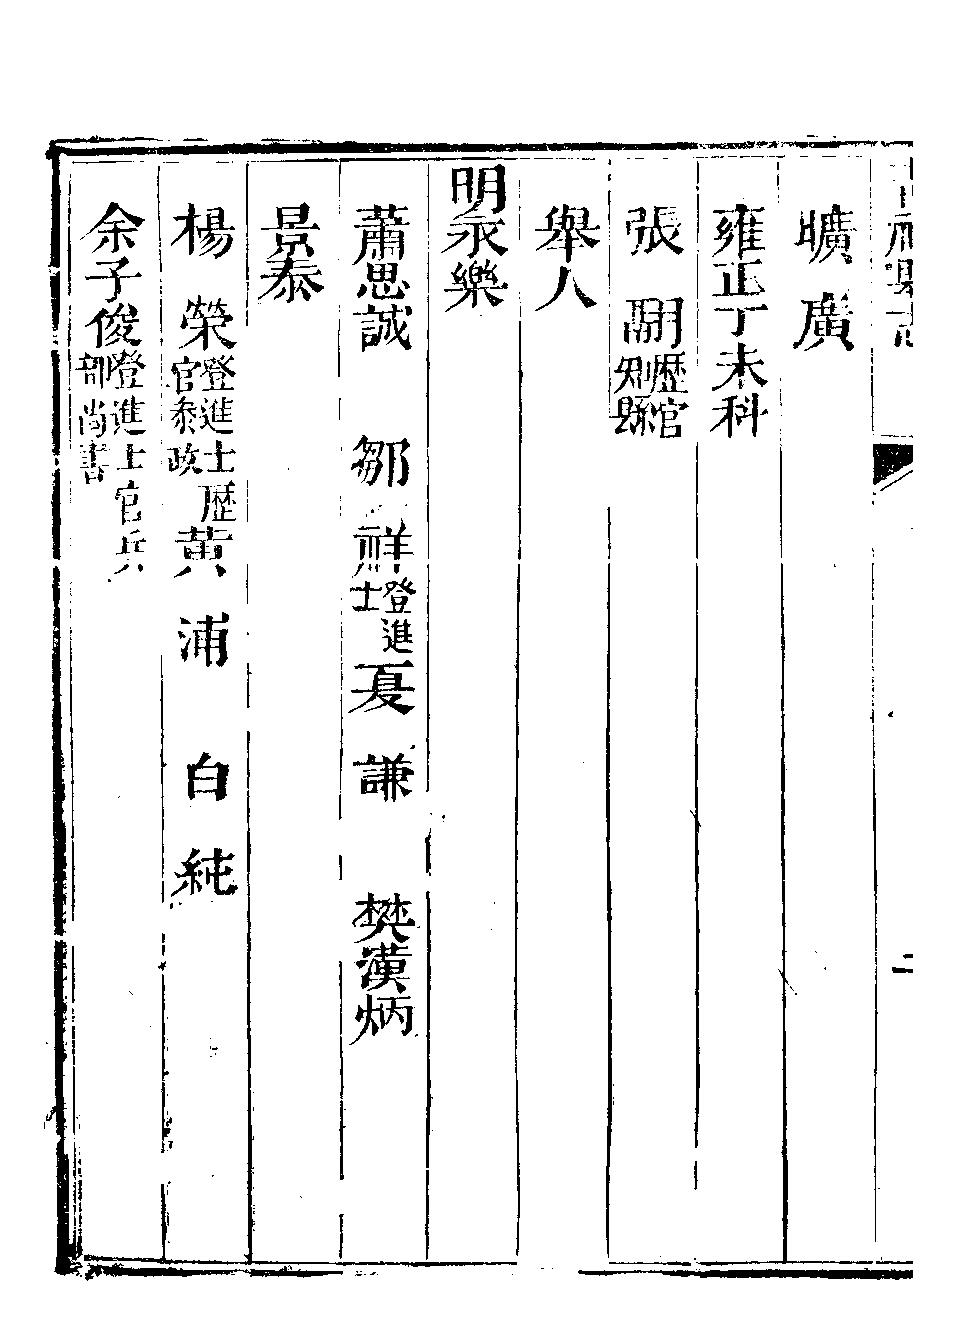 二
曠廣
雍正丁未科
張翮歷官知縣
舉人
明永樂
蕭思誠 鄒祥登進士 夏謙 樊漢炳
景泰
楊榮登進士歷官叅政 黃浦 白純
余子俊登進士官兵部尚書